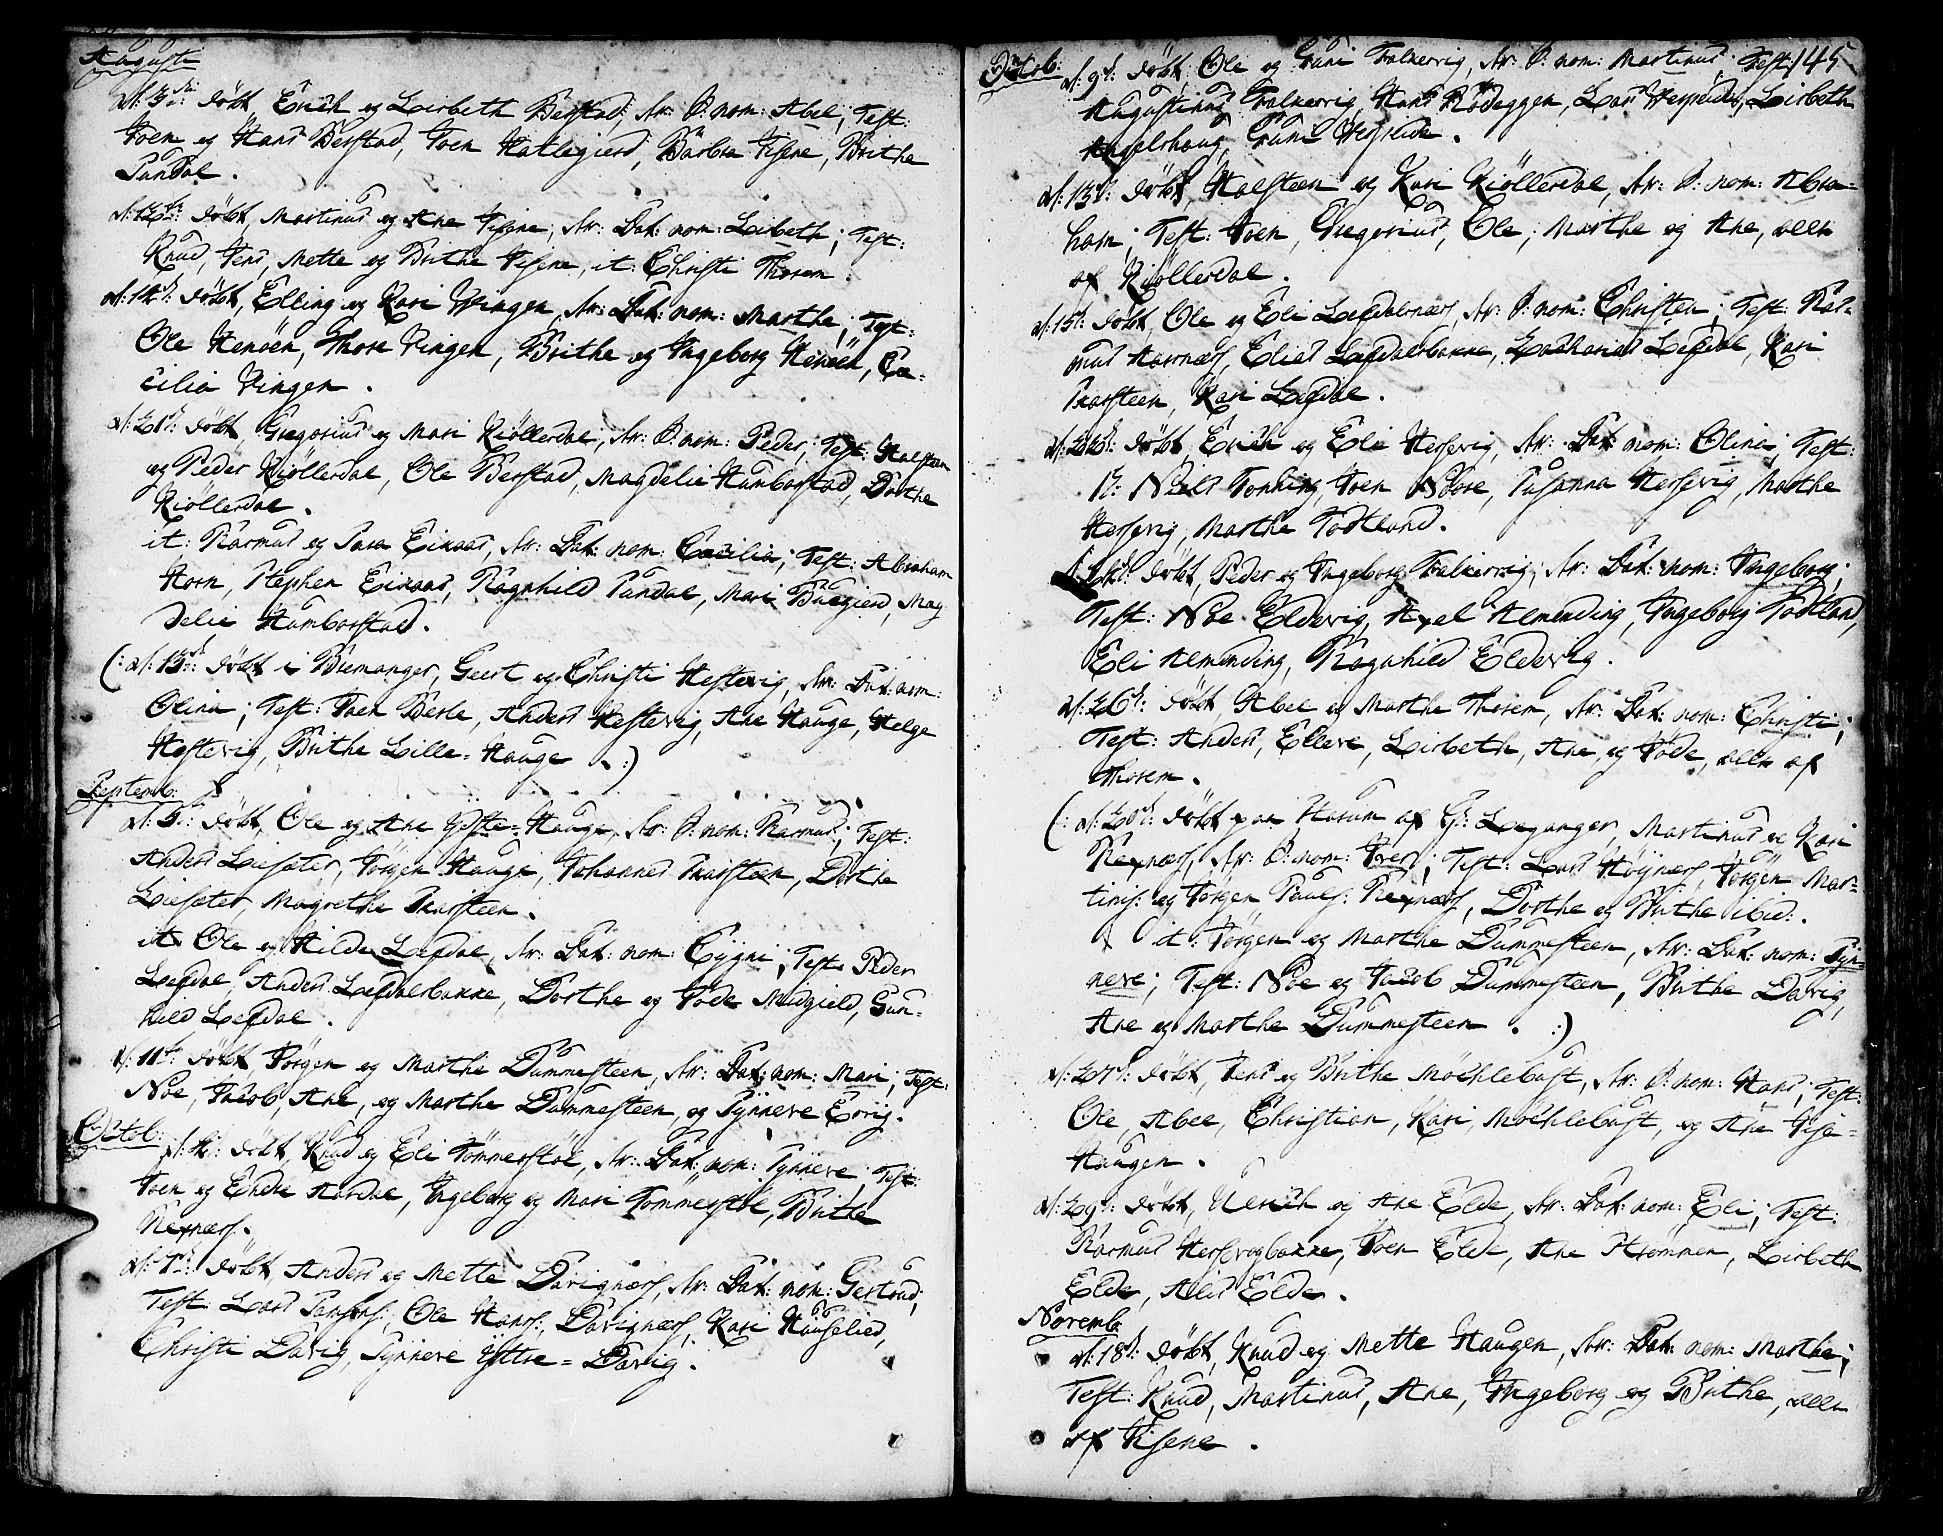 Augusti
d: 3die: döbt, Erich og Lisbeth Berstad, dr: S: nom: Abel; Test:
Joen og Hans Berstad, Joen Hatlegierd, Barbra Visene, Brithe
Sundal.
d: 12te: döbt, Martinus og Ane Visene, dr: Dat: nom: Lisbeth; Test:
Knud, Jens, Mette og Brithe Visene, it: Christi Thorem.
d: 14d: döbt, Elling og Kari Vingen, dr: Dat: nom: Marthe; Test:
Ole Henöen, Thore Vingen, Brithe og Ingeborg Henöen, Cæ-
cilia Vingen.
d: 21d: döbt, Gregorius og Mari Kiöllerdal, dr: S: nom: Peder; Test: Halsteen
og Peder Kiöllerdal, Ole Berstad, Magdelie Humborstad, Dorthe
Kiöllerdal.
it: Rasmus og Sara Eikaas, dr: Dat: nom: Cæcilia; Test: Abraham
Horn, Stephen Eikaas, Ragnhild Sundal, Mari Buegierd, Mag
delie Humborstad.
(: d: 13de: döbt i Bremanger, Geert og Christi Hestevig, dr: Dat: nom:
Olina; Test: Joen Berle, Anders Hestevig, Ane Hauge, Helge
Hestevig, Brithe Lille-Hauge . :)
Septemb:
d: 5t: döbt, Ole og Ane Ydste-Hauge, dr: S: nom: Rasmus; Test:
Anders Liesæter, Jörgen Hauge, Johannes Skarsteen, Dorthe
Liesæter, Magrethe Skarsteen.
it: Ole og Hilde Lefdal, dr: Dat: nom: Sygni; Test: Peder
Lefdal, Anders Lefdalsbakke, Dorthe og Jöde Midgield, Gun-
hild Lefdal.
d: 11te: döbt, Jörgen og Marthe Dummesteen, dr: Dat: nom: Mari; Test:
Noe, Jacob, Ane, og Marthe Dummesteen, og Synneve Ervig.
Octob:
d: 2d: döbt, Knud og Eli Tömmerstöl, dr: Dat: nom: Synneve; Test:
Joen og Endre Aardal, Ingeborg og Mari Tömmerstöl, Brithe
Rexnæs.
d: 7de: döbt, Anders og Mette Davignæs, dr: Dat: nom: Gertrud;
Test: Lars Jansøs:, Ole Hans:, Davignæs, Kari Houselied,
Christi Davig, Synneve Yttre-Davig.
Octob: 145
d: 9d: döbt, Ole og Guri Falkevig, dr: S: nom: Martinus; Test:
Augustinus Falkevig, Hans Rödeggen, Lars Vespelide, Lisbeth
Angelshaug, Guri Vespelide.
d: 13d: döbt, Halsteen og Kari Kiöllerdal, dr: S: nom: Abra-
ham; Test: Joen, Gregorius, Ole, Marthe og Ane, alle
af Kiöllerdal.
d: 15d: döbt, Ole og Eli Lefdalsnæs, dr: S: nom: Christen; Test: Ras-
mus Aarnæs, Elias Lefdalsbakke, Zacharias Lefdal, Kari
Skarsteen, Kari Lefdal.
d: 22d: döbt, Erich og Eli Hersevig, dr: Dat: nom: Olina; Test:
Niels Tonning, Joen Noore, Susanna Hersevig, Marthe
Hersevig, Marthe Todtland.
döbt, Peder og Ingeborg Falkevig, dr: Dat: nom: Ingeborg;
Test: Noe Eldevig, Axel Almending, Ingeborg Todtland,
Eli Almending, Ragnhild Eldevig.
d: 26d: döbt, Abel og Marthe Thorem, dr: Dat: nom: Christi;
Test: Anders, Elleve, Lisbeth, Ane, og Jöde, alle af
Thorem.
(: d: 20d: döbt paa Husum af Leganger, Martinus og Kari
Rexnæs, dr: S: nom: Iver; Test: Lars Höynæs, Jörgen Mar-
tins: og Jörgen Pauls: Rexnæs, Dorthe og Brithe ibid:.
it: Jörgen og Marthe Dummesteen, dr: Dat: nom: Syn-
neve; Test: Noe og Jacob Dummesteen, Brithe Davig,
Ane og Marthe Dummesteen . :)
d: 27d: döbt, Jens og Brithe Möchlebust, dr: S: nom: Hans; Test:
Ole, Abel, Christian, Kari, Möchlebust, og Ane Vise-
Haugen.
d: 29d: döbt, Ulrich og Ane Elde, dr: Dat: nom: Eli; Test:
Rasmus Hersevigbakke, Joen Elde, Ane Strömmen, Lisbeth
Elde, Alis Elde.
Novemb:
d: 18d: döbt, Knud og Mette Haugen, dr: Dat: nom: Marthe;
Test: Knud, Martinus, Ane, Ingeborg og Brithe, alle
af Visene.